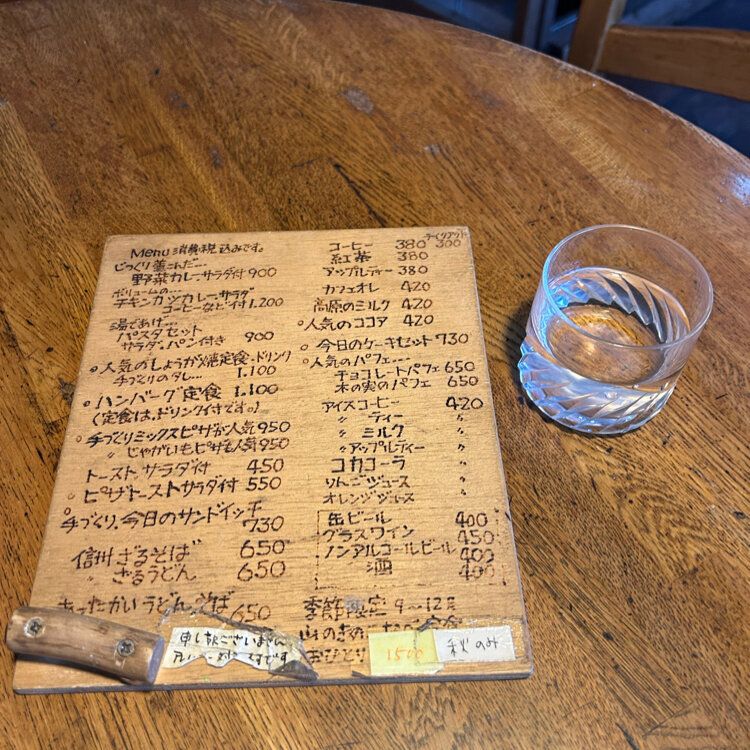 Menu 消費税込みです。
じっくり煮こんだ…
野菜カレーサラダ付 900
ボリュームの…
チキンカツカレー.サラダ
コーヒーなど付 1.200
湯であげ…
パスタセット
サラダ.パン付き 900
人気のしょうが焼定食.ドリンク
手づくりのタレ… 1.100
ハンバーグ定食 1.100
(定食は.ドリンク付です。)
手づくりミックスピザが人気 950
〃 じゃがいもピザも人気 950
トースト.サラダ付 450
ピザトーストサラダ付 550
手づくり.今日のサンドイッチ
730
信州ざるそば 650
〃 ざるうどん 650
あったかいうどん.そば 650
テイクアウト
コーヒー 380 300
紅茶 380
アップルティー 380
カフェオレ 420
高原のミルク 420
人気のココア 420
今日のケーキセット 730
人気のパフェ…
チョコレートパフェ 650
木の実のパフェ 650
アイスコーヒー 420
〃 ティー 〃
〃 ミルク 〃
〃 アップルティー 〃
コカコーラ 〃
りんごジュース 〃
オレンジジュース 〃
缶ビール 400
グラスワイン 450
ノンアルコールビール 400
酒 400
季節限定 9〜12月
おひとり
1500
秋のみ
申し訳ございません